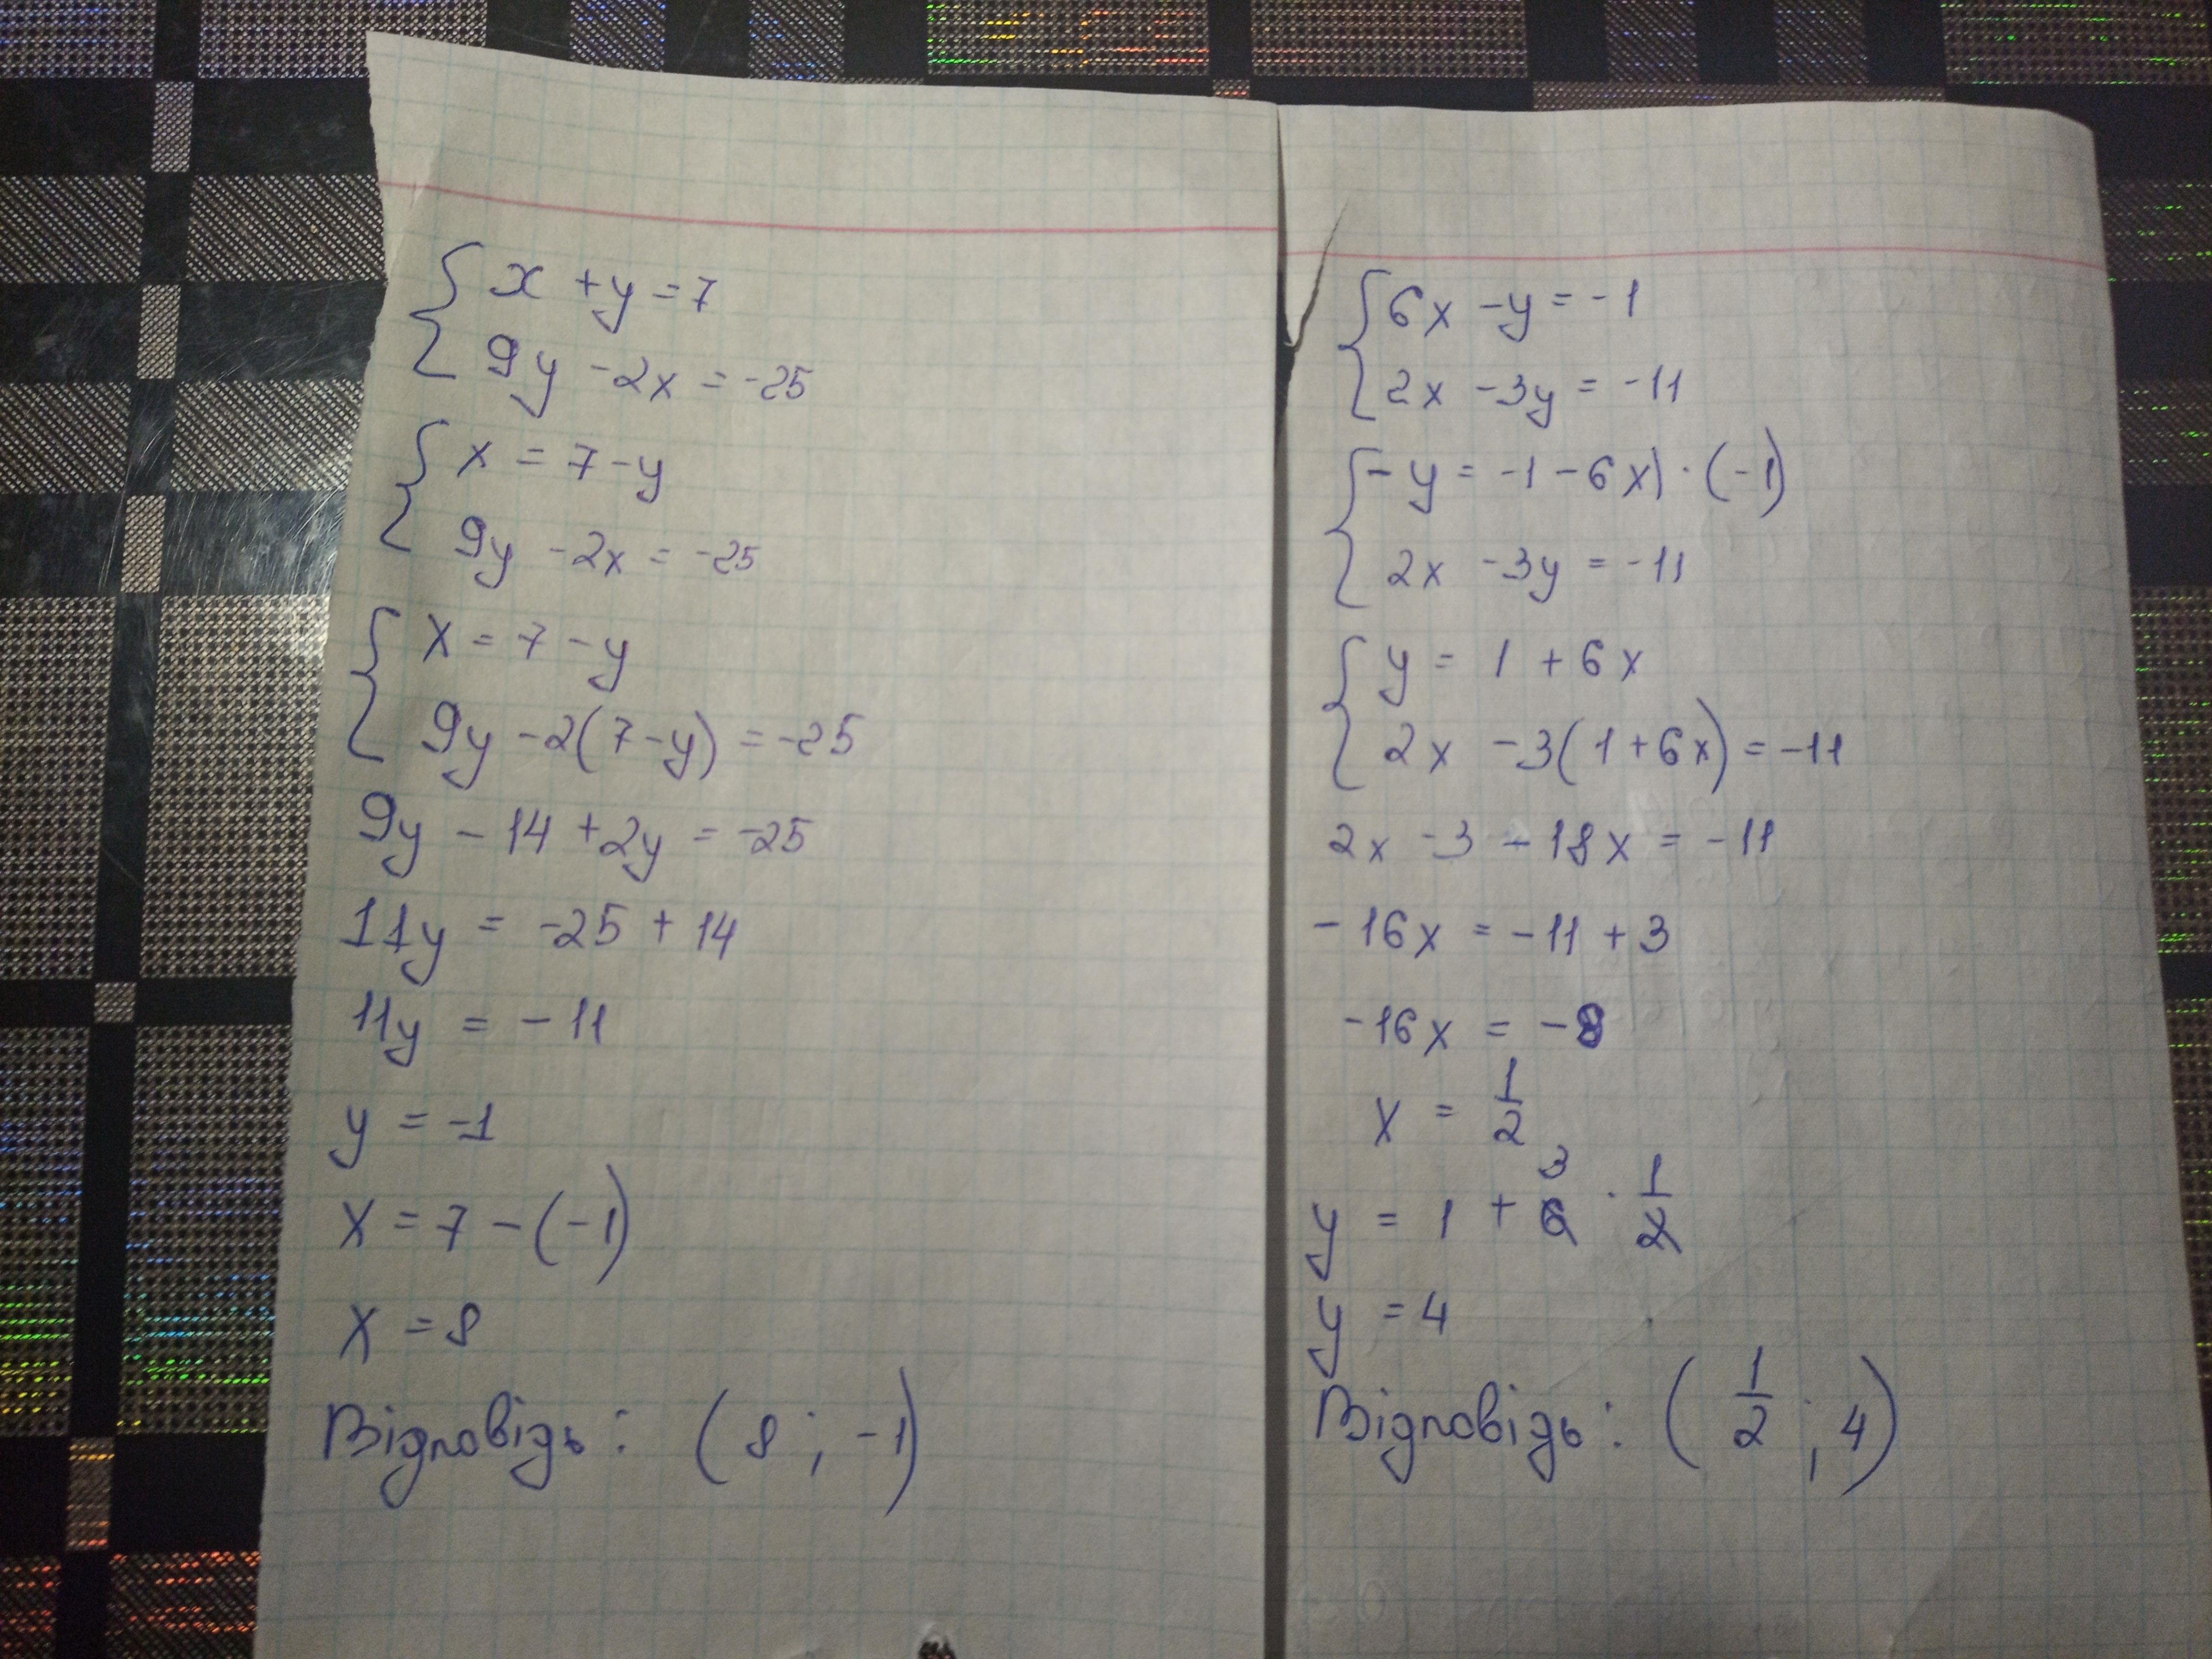 x + y = 7
9y - 2x = -25
x = 7 - y
9y - 2x = -25
x = 7 - y
9y - 2(7 - y) = -25
9y - 14 + 2y = -25
11y = -25 + 14
11y = -11
y = -1
x = 7 - (-1)
x = 8
Відповідь: (8; -1)
6x - y = -1
2x - 3y = -11
-y = -1 - 6x | · (-1)
2x - 3y = -11
y = 1 + 6x
2x - 3(1 + 6x) = -11
2x - 3 - 18x = -11
-16x = -11 + 3
-16x = -8
x = 1/2
3
y = 1 + 6 · 1/2
y = 4
Відповідь: (1/2; 4)